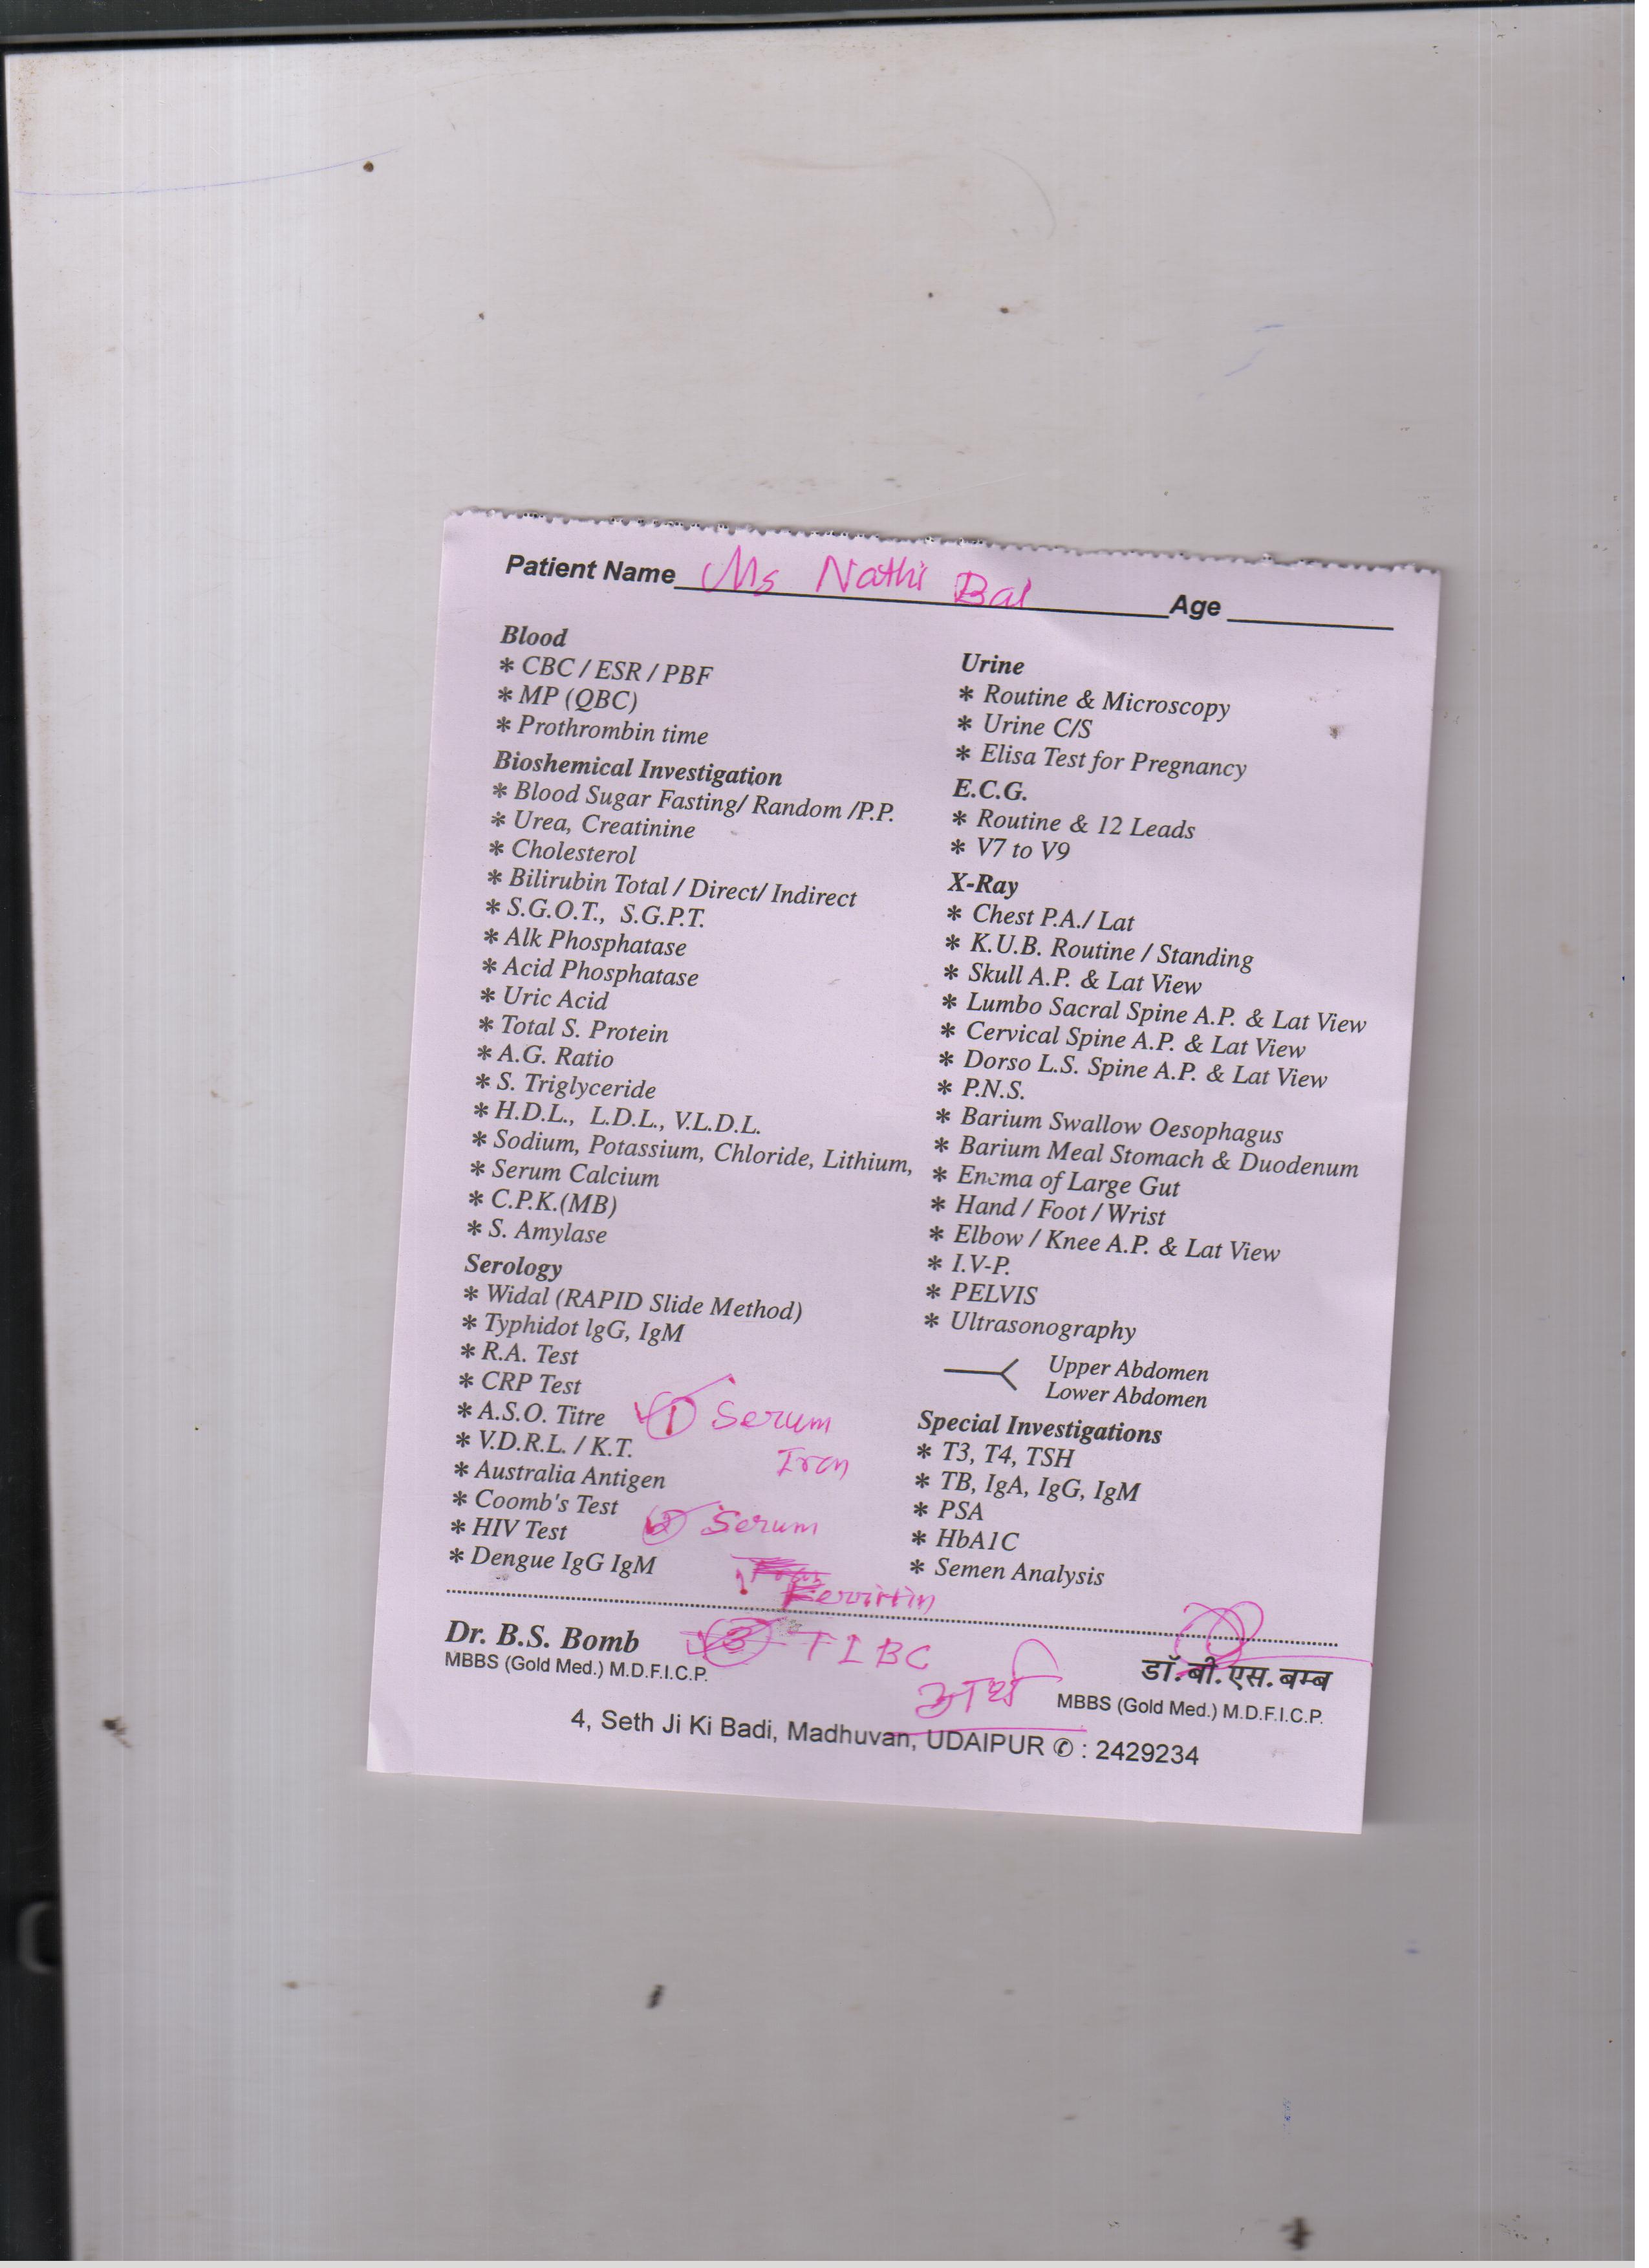 Patient Name Ms Nathi Bai Age
Blood
* CBC / ESR / PBF
* MP (QBC)
* Prothrombin time
Bioshemical Investigation
* Blood Sugar Fasting/ Random /P.P.
* Urea, Creatinine
* Cholesterol
* Bilirubin Total / Direct/ Indirect
* S.G.O.T., S.G.P.T.
* Alk Phosphatase
* Acid Phosphatase
* Uric Acid
* Total S. Protein
* A.G. Ratio
* S. Triglyceride
* H.D.L., L.D.L., V.L.D.L.
* Sodium, Potassium, Chloride, Lithium,
* Serum Calcium
* C.P.K.(MB)
* S. Amylase
Serology
* Widal (RAPID Slide Method)
* Typhidot lgG, IgM
* R.A. Test
* CRP Test
* A.S.O. Titre
* V.D.R.L. / K.T.
* Australia Antigen
* Coomb's Test
* HIV Test
* Dengue IgG IgM
1 Serum
Iron
2 Serum
Ferritin
3 TIBC
Urine
* Routine & Microscopy
* Urine C/S
* Elisa Test for Pregnancy
E.C.G.
* Routine & 12 Leads
* V7 to V9
X-Ray
* Chest P.A./ Lat
* K.U.B. Routine / Standing
* Skull A.P. & Lat View
* Lumbo Sacral Spine A.P. & Lat View
* Cervical Spine A.P. & Lat View
* Dorso L.S. Spine A.P. & Lat View
* P.N.S.
* Barium Swallow Oesophagus
* Barium Meal Stomach & Duodenum
* Enema of Large Gut
* Hand / Foot / Wrist
* Elbow / Knee A.P. & Lat View
* I.V-P.
* PELVIS
* Ultrasonography
Upper Abdomen
Lower Abdomen
Special Investigations
* T3, T4, TSH
* TB, IgA, IgG, IgM
* PSA
* HbA1C
* Semen Analysis
Dr. B.S. Bomb
MBBS (Gold Med.) M.D.F.I.C.P.
डॉ. बी. एस. बम्ब
MBBS (Gold Med.) M.D.F.I.C.P.
4, Seth Ji Ki Badi, Madhuvan, UDAIPUR ✆ : 2429234